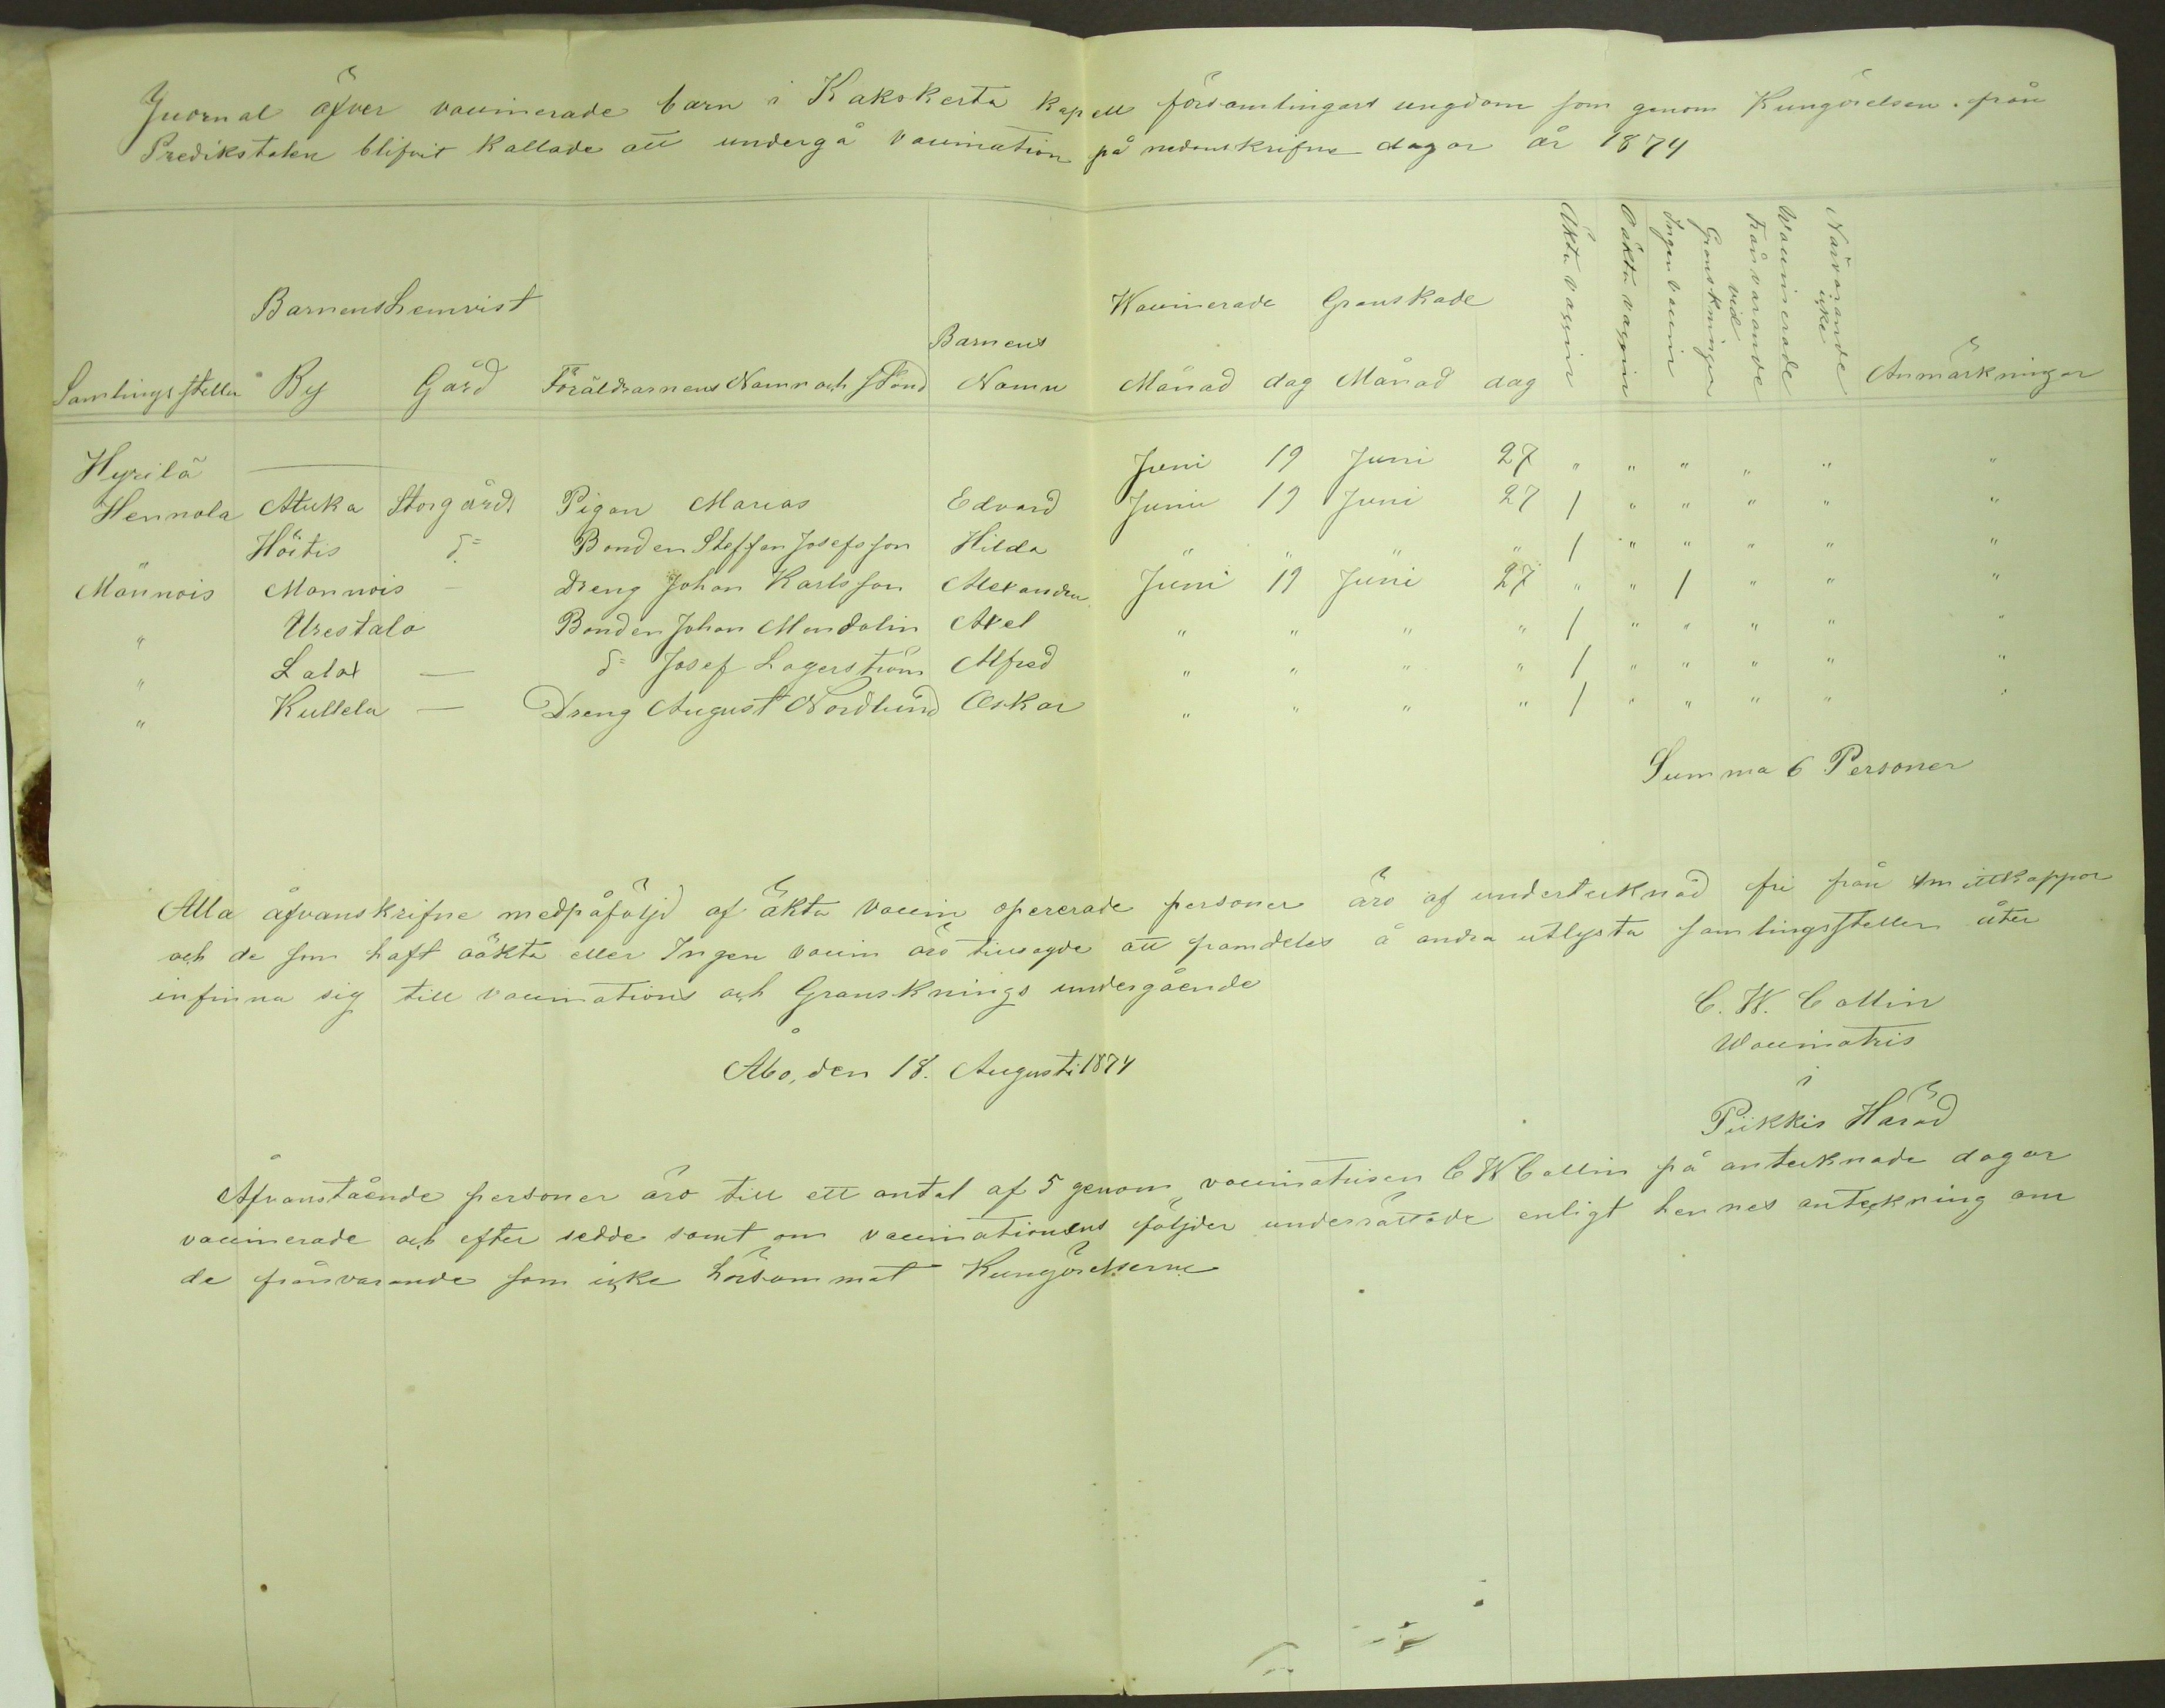 Juornal öfver vaccinerade barn i Kakskerta kapell församlingars ungdom som genom Kungörelsen från
Predikstolen blifvit kallade att undergå vaccination på nedanskrifne dagar år 1874
Barnens hemvist
Waccinerade Granskade
Äkta vaccin
Oäkta vaccin
Ingen vaccin
Frånvarande vid Granskningen
Närvarande icke Waccinerade
Barnens
Samlingsställen By Gård Föräldrarnens Namn och Stånd Namn Månad dag Månad dag Anmärkningar
Hyrilä — Juni 19 Juni 27 " " " " " "
Hennola Atuka Storgårds Pigan Marias Edvard Junii 19 Juni 27 1 " " " " "
Höitis d= Bonden Steffan Josefsson Hilda " " " " 1 " " " " "
Männois Mannois – Dreng Johan Karlsson Alexandra Juni 19 Juni 27 " " 1 " " "
" Urestalo Bonden Johan Mandolin Axel " " " " 1 " " " " "
" Lalax — d= Josef Lagerström Alfred " " " " 1 " " " " "
" Kullela — Dreng August Nordlund Oskar " " " " 1 " " " " "
Summa 6 Personer
Alla åfvanskrifne medpåföljd af äkta vaccin opererade personer äro af undertecknad fri från smittkoppor
och de som haft oäkta eller Ingen vaccin äro tillsagde att framdeles å andra utlysta samlingsställen åter
infinna sig till vaccinations och Gransknings undergående
C. W. Collin
Waccinatris
i
Piikkis Härad
Åbo, den 18. Augusti 1874
Åfvanstående personer äro till ett antal af 5 genom vaccinatrisen C W Collin på antecknade dagar
vaccinerade och efter sedde samt om vaccinationens följder underrättade enligt hennes anteckning om
de frånvarande som icke hörsammat Kungörelserne